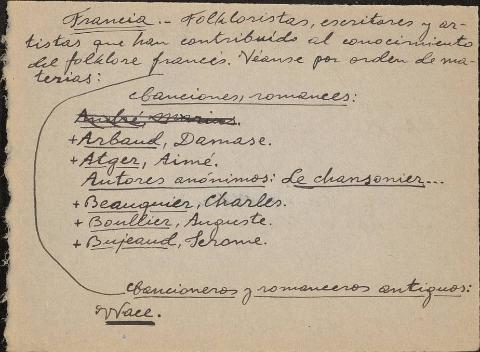 Francia. - Folkloristas, escritores y ar-
tistas que han contribuído al conocimiento
del folklore francés. Véanse por orden de ma-
terias:
Canciones, romances:
André, Marius.
+ Arbaud, Damase.
+ Atger, Aimé.
Autores anónimos: Le chansonier...
+ Beauquier, Charles.
+ Boullier, Auguste.
+ Bujeaud, Jerome.
Cancioneros y romanceros antiguos:
Wace.